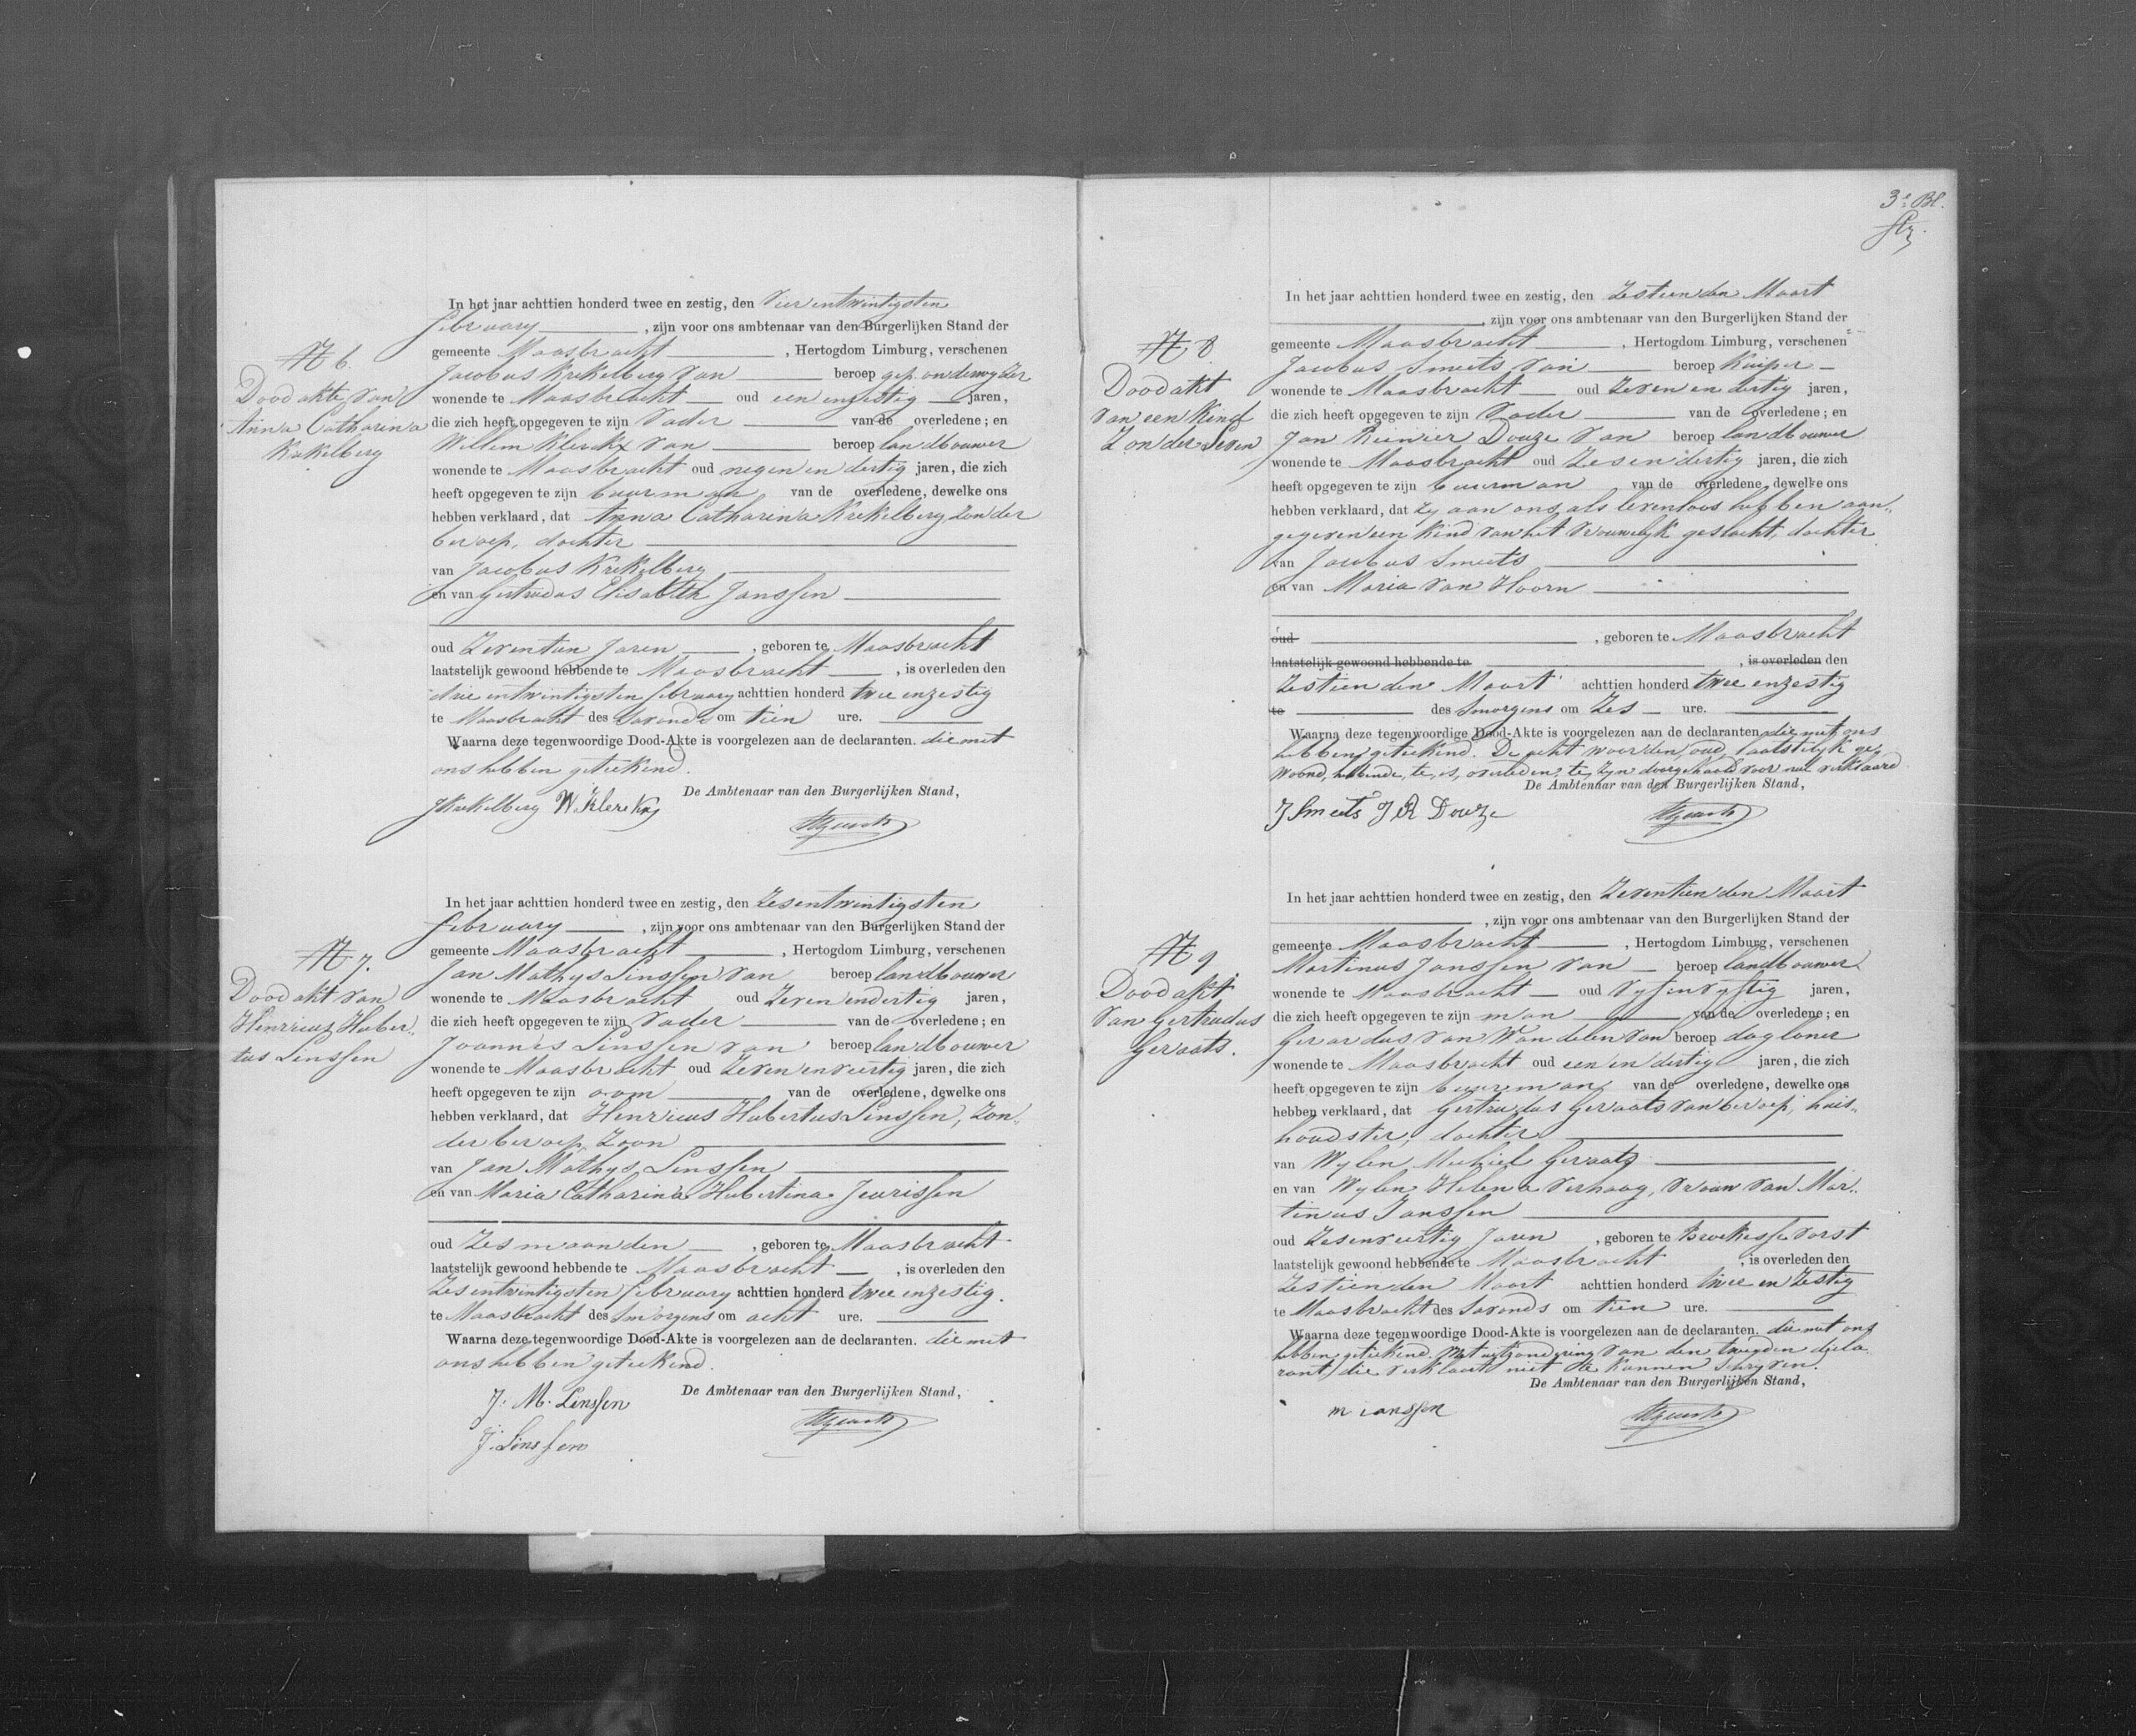 N 6.
Dood akte van
Anna Catharina
Krekelberg
In het jaar achttien honderd twee en zestig, den Vier entwintigsten
februarij , zijn voor ons ambtenaar van den Burgerlijken Stand der
gemeente Maasbracht , Hertogdom Limburg, verschenen
Jacobus Krekelberg van beroep gep. onderwyzer
wonende te Maasbracht oud een enzestig jaren,
die zich heeft opgegeven te zijn Vader van de overledene; en
Willem Klerckx van beroep landbouwer
wonende te Maasbracht oud negen en dertig jaren, die zich
heeft opgegeven te zijn buurman van de overledene, dewelke ons
hebben verklaard, dat Anna Catharina Krekelberg zonder
beroep, dochter
van Jacobus Krekelberg
en van Gertrudas Elisabeth Janssen
oud Zeventien Jaren , geboren te Maasbracht
laatstelijk gewoond hebbende te Maasbracht , is overleden den
drie entwintigsten februarij achttien honderd twee enzestig
te Maasbracht des Savonds om tien ure.
Waarna deze tegenwoordige Dood-Akte is voorgelezen aan de declaranten. die met
ons hebben geteekend.
De Ambtenaar van den Burgerlijken Stand,
J Krekelberg W. Klerckx
N 7.
Dood akt van
Henricus Huber„
tus Linssen
In het jaar achttien honderd twee en zestig, den Zesentwintigsten
februarij , zijn voor ons ambtenaar van den Burgerlijken Stand der
gemeente Maasbracht , Hertogdom Limburg, verschenen
Jan Mathys Linssen van beroep landbouwer
wonende te Maasbracht oud Zeven endertig jaren,
die zich heeft opgegeven te zijn Vader van de overledene; en
Joannes Linssen van beroep landbouwer
wonende te Maasbracht oud Zeven enveertig jaren, die zich
heeft opgegeven te zijn oom van de overledene, dewelke ons
hebben verklaard, dat Henricus Hubertus Linssen, Zon„
der beroep Zoon
van Jan Mathys Linssen
en van Maria Catharina Hubertina Jeurissen
oud Zes maanden , geboren te Maasbracht
laatstelijk gewoond hebbende te Maasbracht , is overleden den
Zesentwintigsten februarij achttien honderd twee enzestig.
te Maasbracht des Smorgens om acht ure.
Waarna deze tegenwoordige Dood-Akte is voorgelezen aan de declaranten. die met
ons hebben geteekend.
De Ambtenaar van den Burgerlijken Stand,
J. M. Linssen
J. Linssen
3e Bl.
N 8
Dood akt
van een Kind
Zonder Leven
In het jaar achttien honderd twee en zestig, den Zestienden Maart
, zijn voor ons ambtenaar van den Burgerlijken Stand der
gemeente Maasbracht , Hertogdom Limburg, verschenen
Jacobus Smeets van beroep Kuiper
wonende te Maasbracht oud Zeven en dertig jaren,
die zich heeft opgegeven te zijn Vader van de overledene; en
Jan Reinier Douze van beroep landbouwer
wonende te Maasbracht oud Zesendertig jaren, die zich
heeft opgegeven te zijn buurman van de overledene, dewelke ons
hebben verklaard, dat Zy aan ons als levenloos hebben aan„
gegeven een Kind van het Vrouwelyk geslacht, dochter
van Jacobus Smeets
en van Maria van Hoorn
oud , geboren te Maasbracht
laatstelijk gewoond hebbende te , is overleden den
Zestienden Maart achttien honderd twee enzestig
te des Smorgens om Zes ure.
Waarna deze tegenwoordige Dood-Akte is voorgelezen aan de declaranten die met ons
hebben geteekend. De acht woorden, oud, laatstelyk ge„
woond, hebbende, te, is, overleden, te, Zyn doorgehaald voor nul verklaard
De Ambtenaar van den Burgerlijken Stand,
J Smeets J R Douze
N 9.
Dood akt
van Gertrudas
Geraats.
In het jaar achttien honderd twee en zestig, den Zeventienden Maart
, zijn voor ons ambtenaar van den Burgerlijken Stand der
gemeente Maasbracht , Hertogdom Limburg, verschenen
Martinus Janssen van beroep landbouwer
wonende te Maasbracht oud Vyfenvyftig jaren,
die zich heeft opgegeven te zijn man van de overledene; en
Gerardus van Wandelen van beroep dagloner
wonende te Maasbracht oud een en dertig jaren, die zich
heeft opgegeven te zijn buurman van de overledene, dewelke ons
hebben verklaard, dat Gertrudas Geraats van beroep, huis„
houdster, dochter
van Wylen Michiel Geraats
en van Wylen Helena Verhaag, Vrouw van Mar„
tinus Janssen
oud Zesenveertig Jaren , geboren te Broekessevorst
laatstelijk gewoond hebbende te Maasbracht , is overleden den
Zestienden Maart achttien honderd twee en Zestig
te Maasbracht des Savonds om tien ure.
Waarna deze tegenwoordige Dood-Akte is voorgelezen aan de declaranten. die met ons
hebben geteekend. Met uitzondering van den tweeden dekla
rant, die verklaart niet te kunnen schryven.
De Ambtenaar van den Burgerlijken Stand,
m ianssen